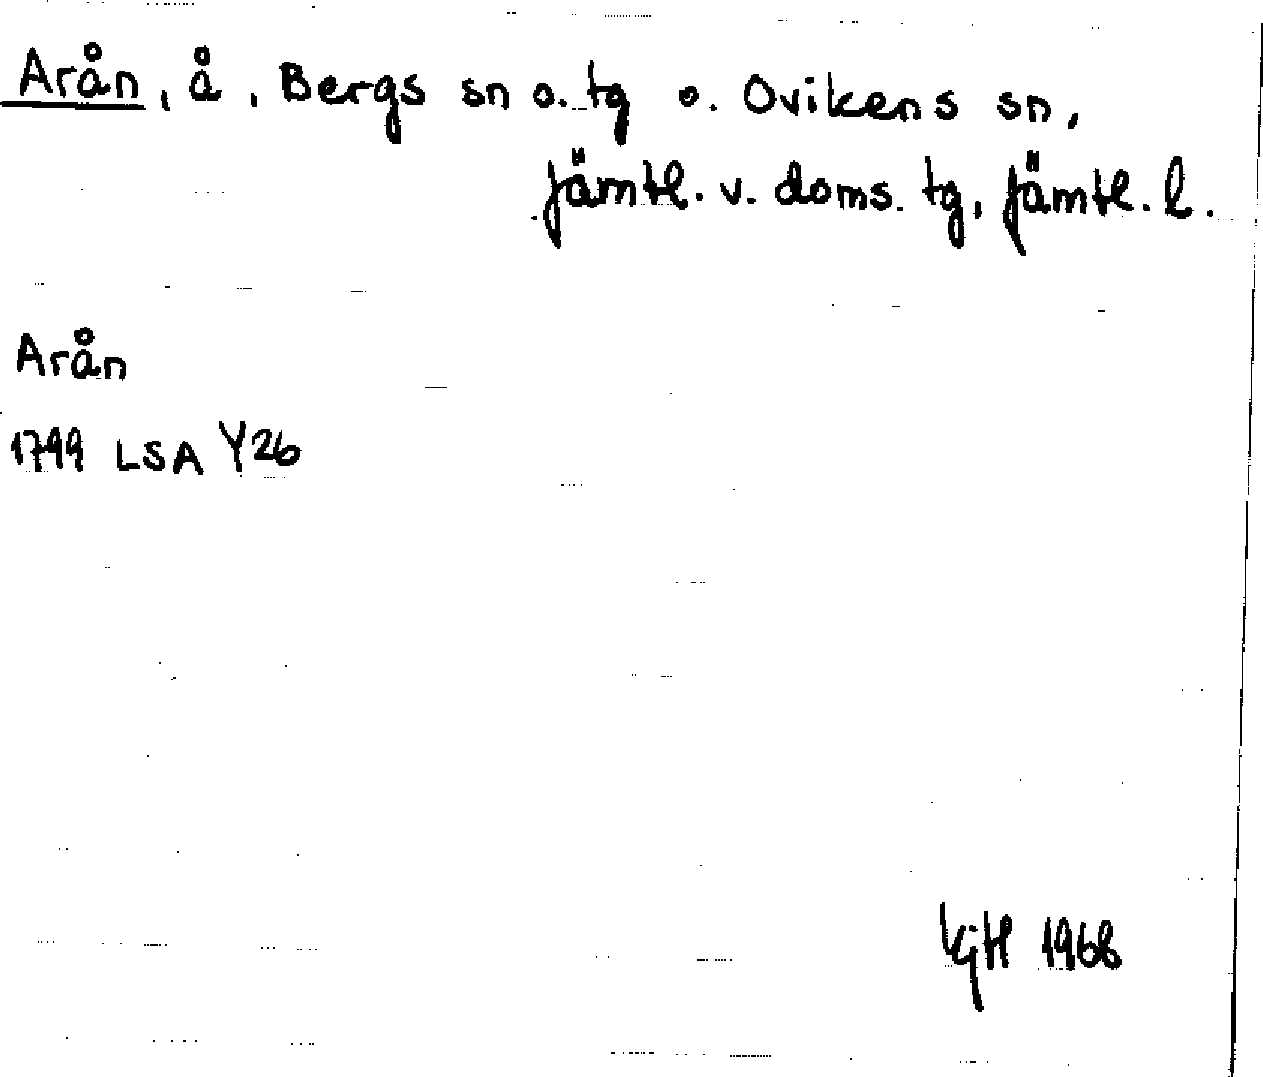 Arån, å, Bergs sn o. tg o. Ovikens sn,
Jämtl. v. doms. tg, Jämtl. l.
Arån
1799 LSA Y26
1968